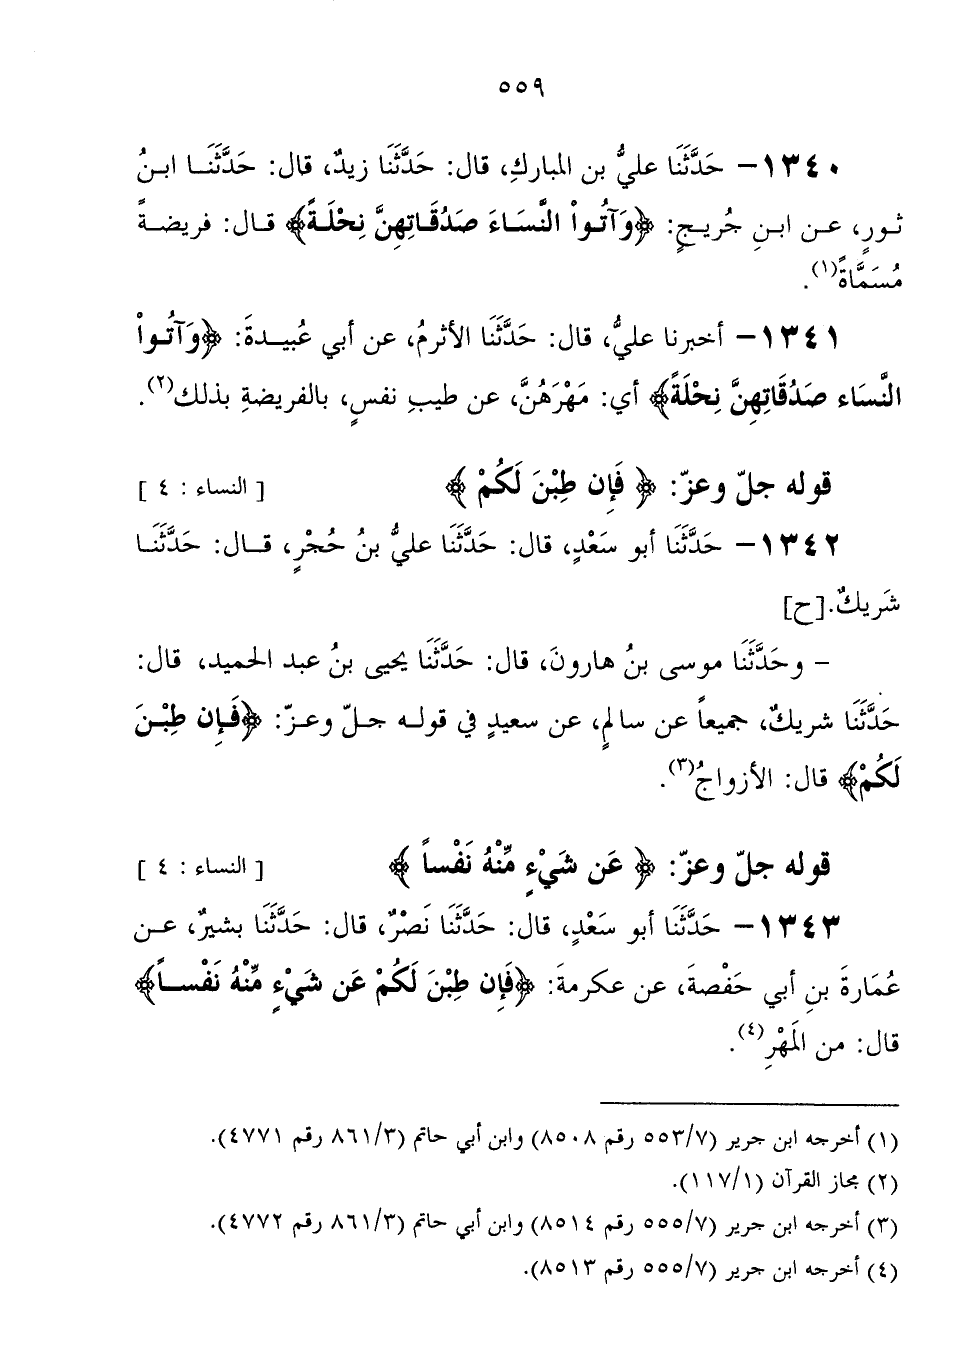 ٥٥٩
١٣٤٠- حَدَّثَنَا عليُّ بن المباركِ، قال: حَدَّثَنَا زيدٌ، قال: حَدَّثَنَـا ابـنُ
ثـورٍ، عـن ابـنِ جُريـجٍ: ﴿وَآتُـواْ النَّسَـاءَ صَدُقَـاتِهِنَّ نِحْلَـةً﴾ قـال: فريضـةً
مُسَمَّاةً(١).
١٣٤١- أخبرنا عليُّ، قال: حَدَّثَنَا الأثرمُ، عن أبي عُبيـدةَ: ﴿وَآتُـواْ
النَّسَاء صَدُقَاتِهِنَّ نِحْلَةً﴾ أي: مَهْرَهُنَّ، عن طيبِ نفسٍ، بالفريضةِ بذلك(٢).
قوله جلّ وعزّ: ﴿ فَإِن طِبْنَ لَكُمْ ﴾ [ النساء : ٤ ]
١٣٤٢- حَدَّثَنَا أبو سَعْدٍ، قال: حَدَّثَنَا عليُّ بنُ حُجْرٍ، قـال: حَدَّثَنَـا
شَريكٌ.[ح]
- وحَدَّثَنَا موسى بنُ هارونَ، قال: حَدَّثَنَا يحيى بنُ عبد الحميد، قال:
حَدَّثَنَا شريكٌ، جميعاً عن سالمٍ، عن سعيدٍ في قولـه جـلّ وعـزّ: ﴿فَـإِن طِبْـنَ
لَكُمْ﴾ قال: الأزواجُ(٣).
قوله جلّ وعزّ: ﴿ عَن شَيْءٍ مِّنْهُ نَفْساً ﴾ [ النساء : ٤ ]
١٣٤٣- حَدَّثَنَا أبو سَعْدٍ، قال: حَدَّثَنَا نَصْرٌ، قال: حَدَّثَنَا بشيرٌ، عـن
عُمَارةَ بنِ أبي حَفْصةَ، عن عكرمةَ: ﴿فَإِن طِبْنَ لَكُمْ عَن شَيْءٍ مِّنْهُ نَفْسـاً﴾
قال: من المَهْرِ(٤).
(١) أخرجه ابن جرير (٥٥٣/٧ رقم ٨٥٠٨) وابن أبي حاتم (٨٦١/٣ رقم ٤٧٧١).
(٢) مجاز القرآن (١١٧/١).
(٣) أخرجه ابن جرير (٥٥٥/٧ رقم ٨٥١٤) وابن أبي حاتم (٨٦١/٣ رقم ٤٧٧٢).
(٤) أخرجه ابن جرير (٥٥٥/٧ رقم ٨٥١٣).